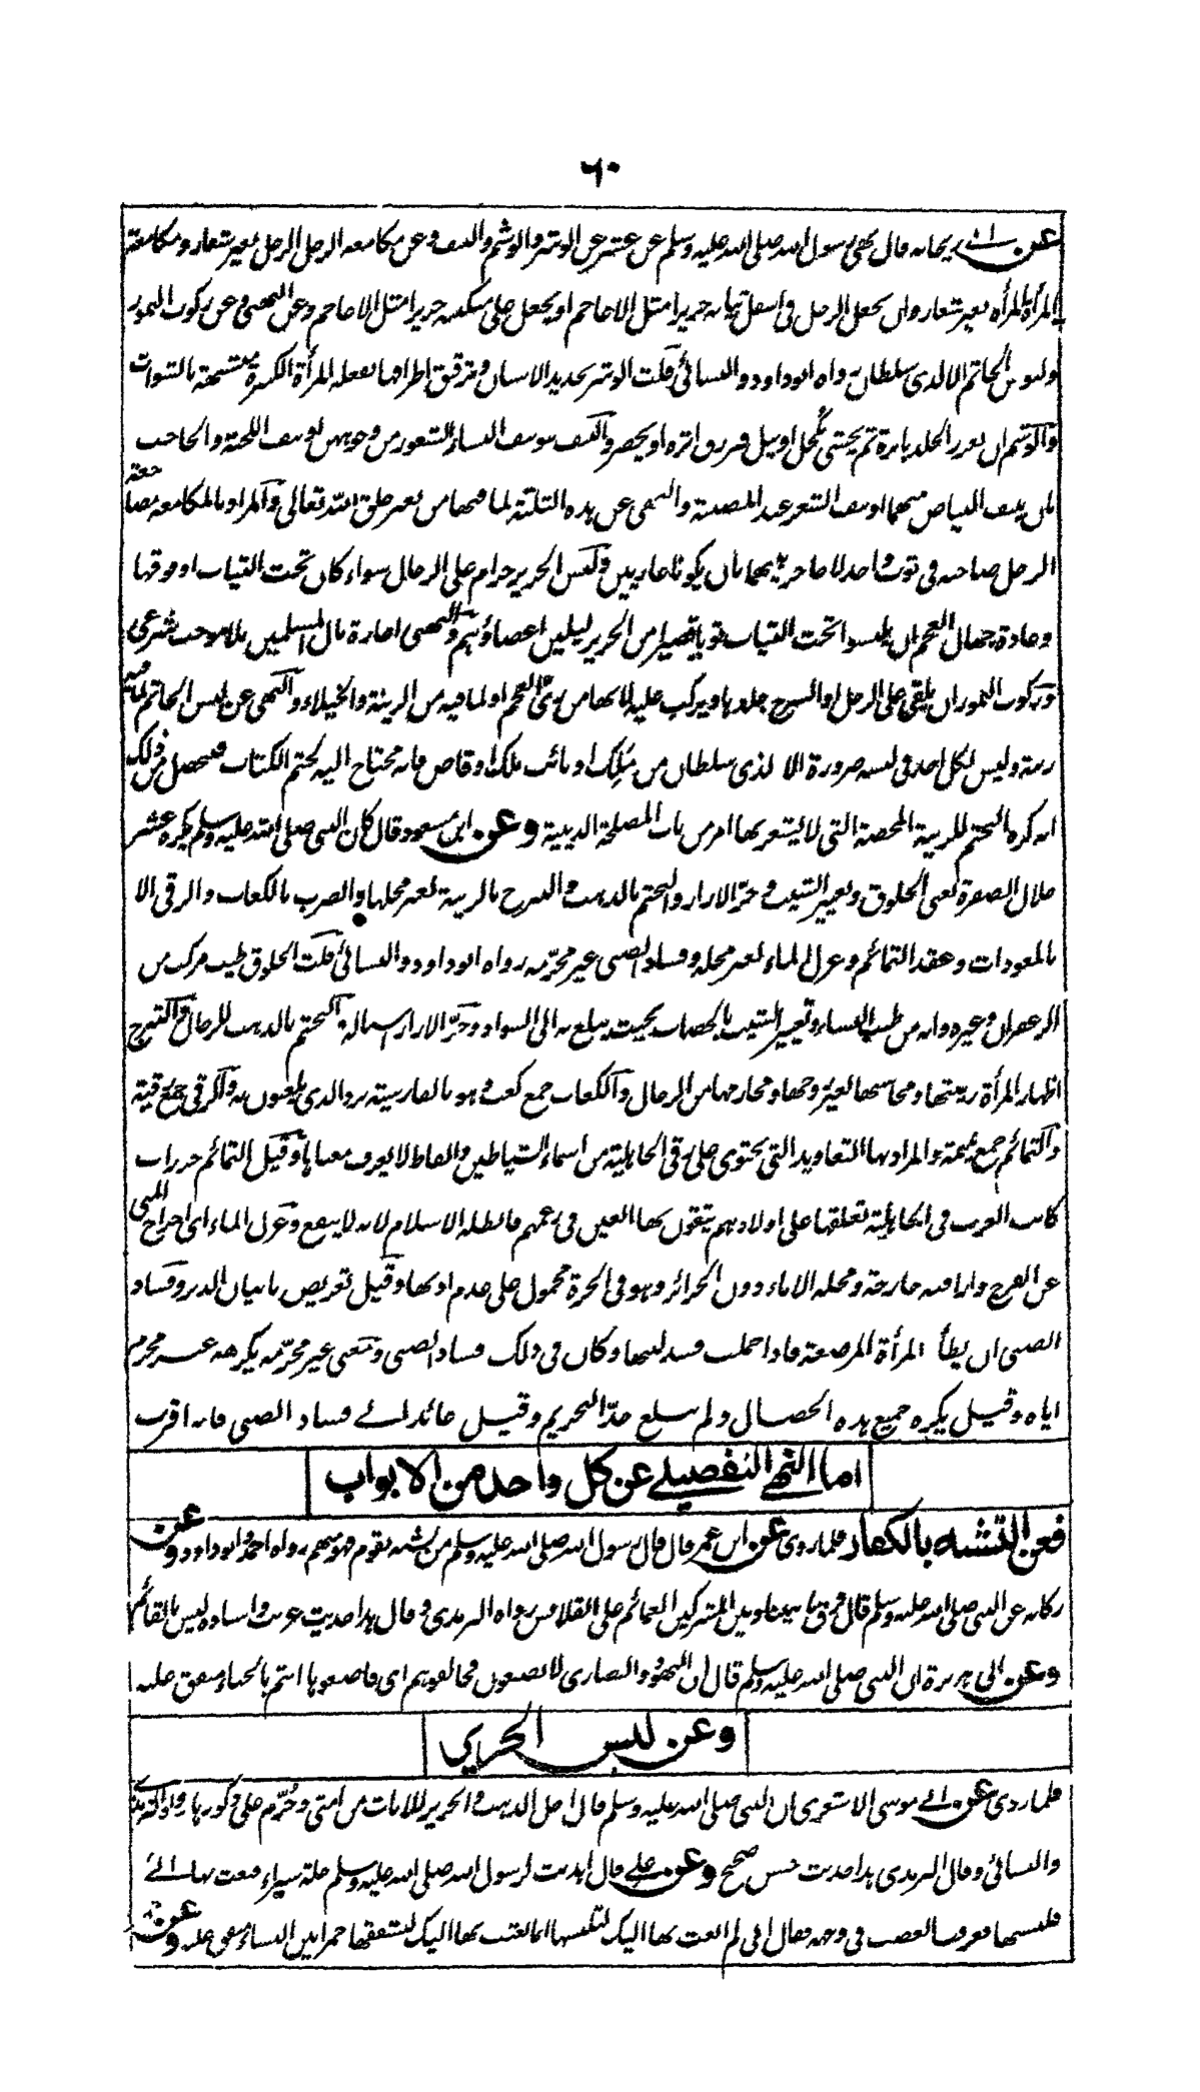 ٦٠
عن ابي ريحانة قال نهى رسول الله صلى الله عليه وسلم عن عشر عن الوشر والوشم والنتف وعن مكامعة الرجل الرجل بغير شعار ومكامعة
المرأة المرأة بغير شعار وان يجعل الرجل في اسفل ثيابه حريرا مثل الاعاجم او يجعل على منكبيه حريرا مثل الاعاجم وعن النهبى وعن ركوب النمور
ولبوس الخاتم الا لذي سلطان رواه ابو داود والنسائي قلت الوشر تحديد الاسنان وترقيق اطرافها تفعله المرأة الكبيرة متشبهة بالشواب
والوشم ان يغرز الجلد بابرة ثم يحشى بكحل او نيل فيزرق اثره او يخضر والنتف نتف النساء الشعور من وجوههن او نتف اللحية والحاجب
بان ينتف البياض منهما او نتف الشعر عند المصيبة والنهي عن هذه الثلثة لما فيها من تغير خلق الله تعالى والمراد بالمكامعة مضاجعة
الرجل صاحبه في ثوب واحد لا حاجز بينهما بان يكونا عاريين ولبس الحرير حرام على الرجال سواء كان تحت الثياب او فوقها
وعادة جهال العجم ان يلبسوا تحت الثياب ثوبا قصيرا من الحرير ليلين اعضاؤهم والنهبى اغارة مال المسلمين بلا موجب شرعي
وركوب النمور ان يلقي على الرحل او السرج جلدها ويركب عليه لانها من زي العجم او لما فيه من الزينة والخيلاء والنهي عن لبس الخاتم لما فيه
زينة وليس لكل احد في لبسه ضرورة الا لذي سلطان من ملك او نائب ملك او قاض فانه محتاج اليه لختم الكتاب فتحصل من ذلك
انه كره التختم للزينة المحضة التي لا يشعر بها امر من باب المصلحة الدينية وعن ابن مسعود قال كان النبي صلى الله عليه وسلم يكره عشر
خلال الصفرة يعني الخلوق وتغيير الشيب وجر الازار والتختم بالذهب والتبرج بالزينة لغير محلها والضرب بالكعاب والرقى الا
بالمعوذات وعقد التمائم وعزل الماء لغير محله وفساد الصبي غير محرمه رواه ابو داود والنسائي قلت الخلوق طيب مركب من
الزعفران وغيره وانه من طيب النساء وتغيير الشيب بالخضاب بحيث يبلغ به الى السواد وجر الازار اسباله والتختم بالذهب للرجال والتبرج
اظهار المرأة زينتها ومحاسنها لغير زوجها ومحارمها من الرجال والكعاب جمع كعب وهو بالفارسية نرد الذي يلعبون به والرقى جمع رقية
والتمائم جمع تميمة والمراد بها التعاويذ التي يحتوي على رقى الجاهلية من اسماء الشياطين والفاظ لا يعرف معناها وقيل التمائم خرزات
كانت العرب في الجاهلية تعلقها على اولادهم يتقون بها العين في زعمهم فابطله الاسلام لانه لا ينفع وعزل الماء اي اخراج المني
عن الفرج واراقته خارجة ومحله الاماء دون الحرائر وهو في الحرة محمول على عدم اذنها وقيل تعريض باتيان الدبر وفساد
الصبي ان يطأ المرأة المرضعة فاذا حملت فسد لبنها وكان في ذلك فساد الصبي ومعنى غير محرمه يكرهه غير محرم
اياه وقيل يكره جميع هذه الخصال ولم يبلغ حد التحريم وقيل عائد الى فساد الصبي فانه اقرب
اما النهي التفصيلي عن كل واحد من الابواب
فعن التشبه بالكفار فلما روى عن ابن عمر قال قال رسول الله صلى الله عليه وسلم من تشبه بقوم فهو منهم رواه احمد وابو داود وعن
ركانة عن النبي صلى الله عليه وسلم قال فرق ما بيننا وبين المشركين العمائم على القلانس رواه الترمذي وقال هذا حديث غريب واسناده ليس بالقائم
وعن ابي هريرة ان النبي صلى الله عليه وسلم قال ان اليهود والنصارى لا يصبغون فخالفوهم اي فاصبغوها انتم بالحناء متفق عليه
وعن لبس الحرير
فلما روى عن ابي موسى الاشعري ان النبي صلى الله عليه وسلم قال احل الذهب والحرير للاناث من امتي وحرم على ذكورها رواه الترمذي
والنسائي وقال الترمذي هذا حديث حسن صحيح وعن علي قال اهديت لرسول الله صلى الله عليه وسلم حلة سيراء فبعث بها الي
فلبستها فعرفت الغضب في وجهه فقال اني لم ابعث بها اليك لتلبسها انما بعثت بها اليك لتشققها خمرا بين النساء متفق عليه وعن